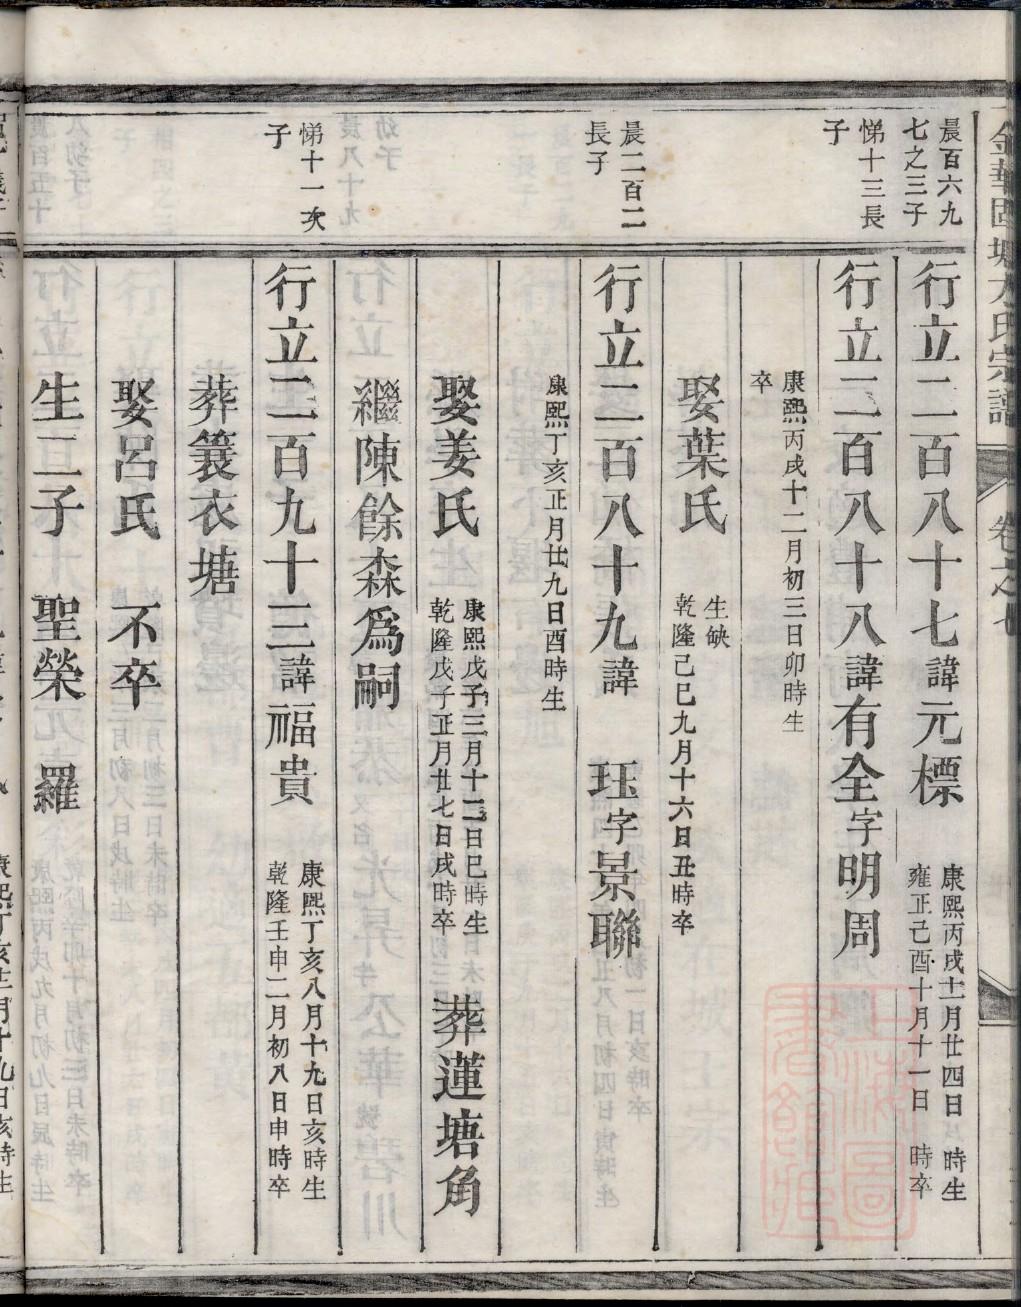 卷之七
晨百六九
七之三子
行立二百八十七諱元標
康熙丙戌十一月廿四日 時生
雍正己酉十月十一日 時卒
悌十三長
子
行立二百八十八諱有全字明周
康熙丙戌十二月初三日卯時生
卒
娶葉氏
生缺
乾隆己巳九月十六日丑時卒
晨二百二
長子
行立二百八十九諱 珏字景聯
康熙丁亥正月廿九日酉時生
娶姜氏
康熙戊子三月十二日巳時生
乾隆戊子正月廿七日戌時卒
葬蓮塘角
繼陳餘森爲嗣
悌十一次
子
行立二百九十三諱福貴
康熙丁亥八月十九日亥時生
乾隆壬申二月初八日申時卒
葬簑衣塘
娶呂氏 不卒
生二子 聖榮 羅